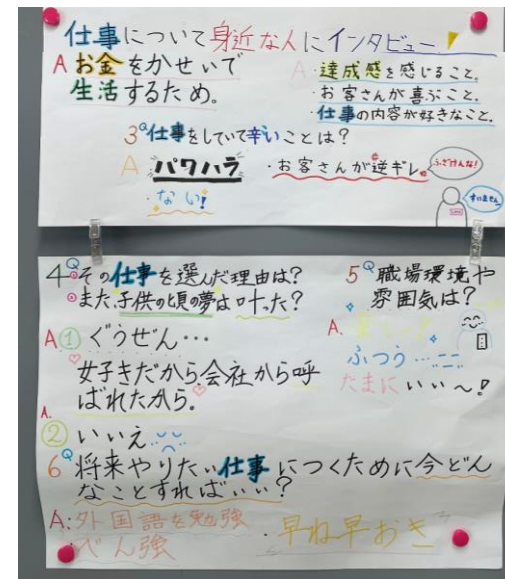 仕事について身近な人にインタビュー!
A お金をかせいで
生活するため。
A・達成感を感じること。
・お客さんが喜ぶこと。
・仕事の内容が好きなこと。
3Q仕事をしていて辛いことは?
A パワハラ
・お客さんが逆ギレ。
ふざけんな!
・ない!
すいません
4Qその仕事を選んだ理由は?
また、子供の頃の夢は叶った?
A①ぐうぜん…
女子きだから会社から呼
ばれたから。
A.
②いいえ
5Q職場環境や
雰囲気は?
A.楽しい!
ふつう…
たまにいい〜!
6Q将来やりたい仕事につくために今どん
なことすればいい?
A:外国語を勉強
・べん強
・早ね早おき